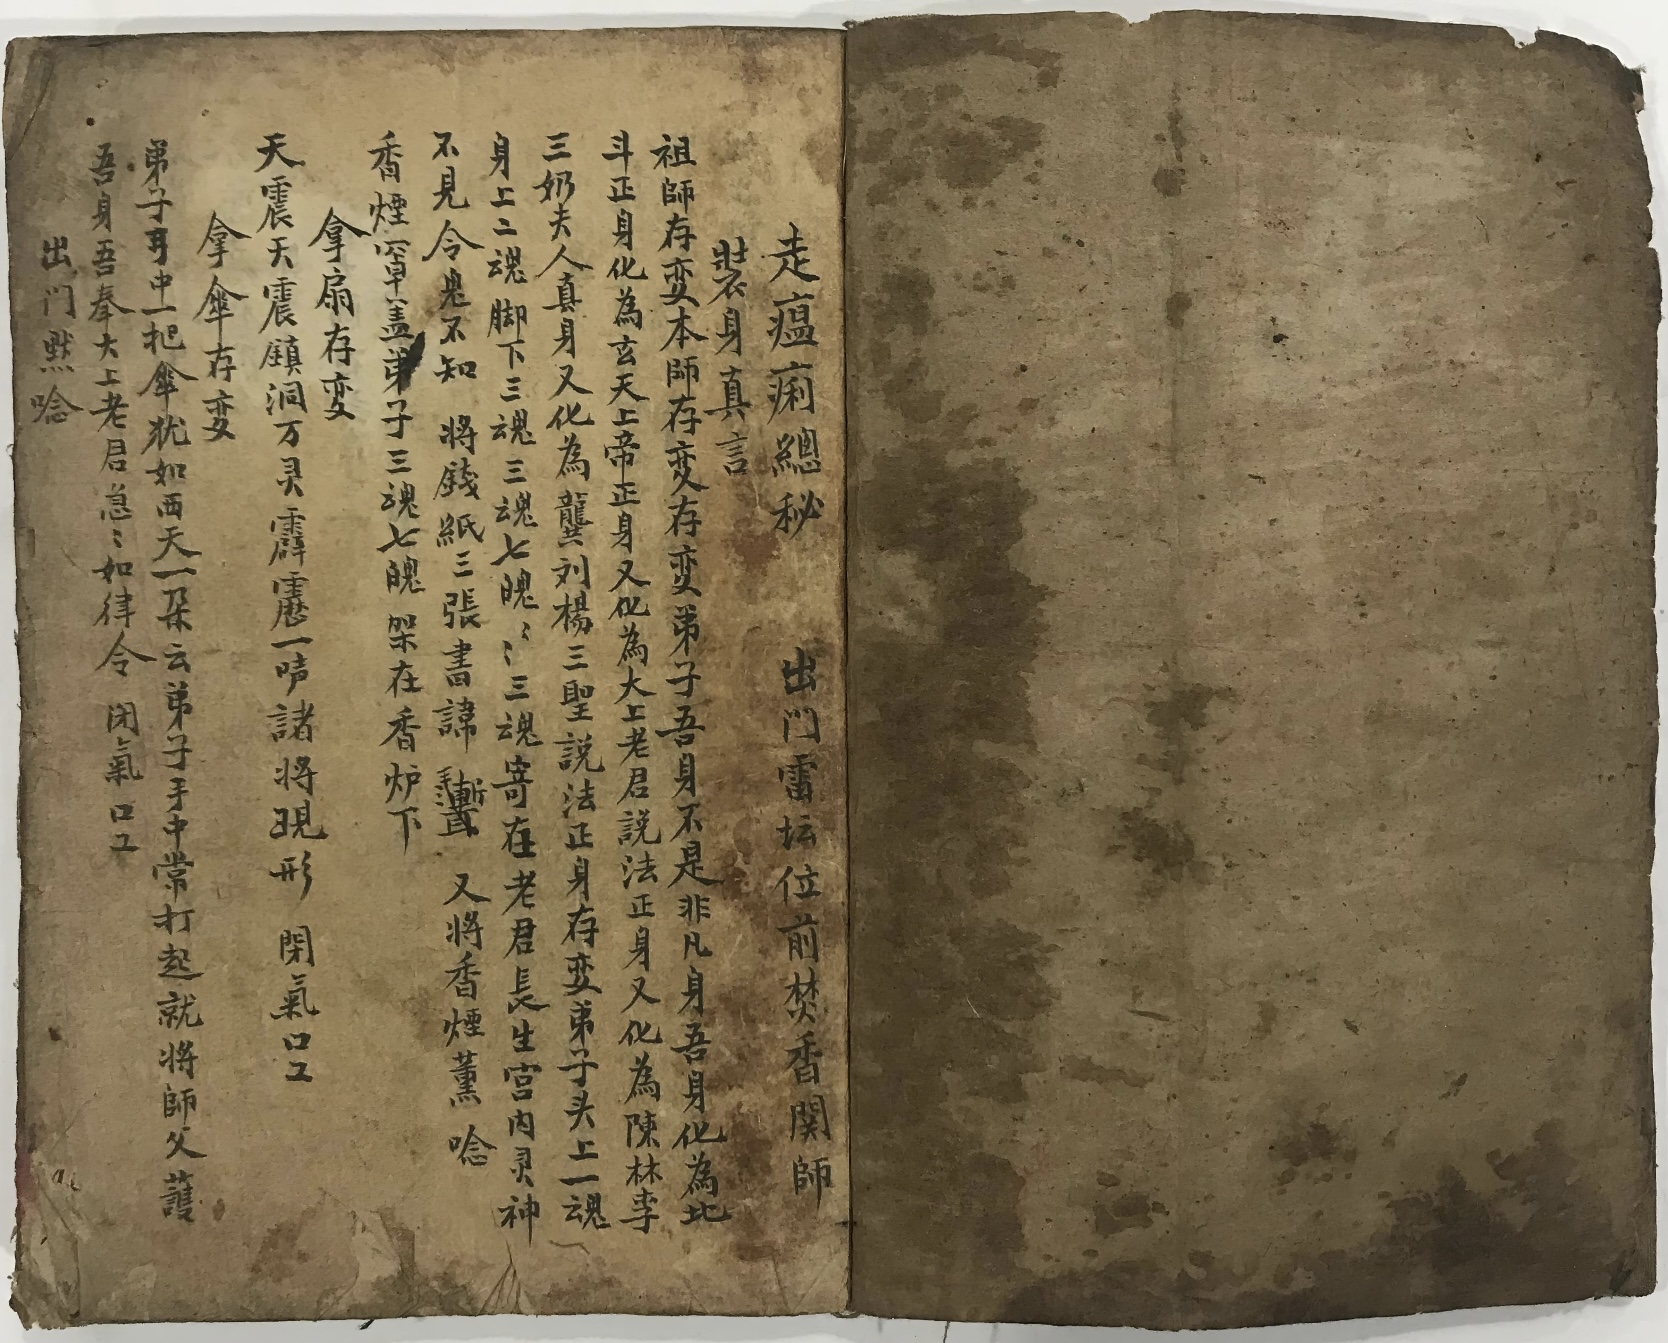 走瘟痢總秘 出门雷坛位前焚香関師
裝身真言
祖師存变本師存变存变弟子吾身不是非凡身吾身化為北
斗正身化為玄天上帝正身又化為大上老君説法正身又化為陳林李
三奶夫人真身又化為龔刘楊三聖説法正身存变弟子头上一魂
身上二魂脚下三魂三魂七魄〻〻三魂寄在老君長生宫内灵神
不見令鬼不知 将錢紙三張書諱 又将香煙薰 唸
香煙罩盖弟子三魂七魄架在香炉下
拿扇存变
天震天震鎮洞万灵霹靂一声諸将現形 闭氣口工
拿傘存变
弟子手中一把傘犹如西天一朵云弟子手中常打起就将師父護
吾身吾奉大上老君急〻如律令 闭氣口工
出门默唸